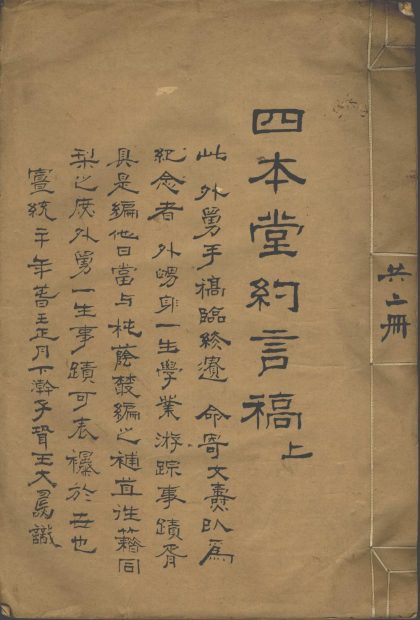 共二冊
四本堂約言稿上
此 外舅手稿臨終遺 命寄文以為
紀念者 外舅一生學業游踪事蹟胥
具是編他日當与蔭叢編之補苴往籍同
梨之庶外舅一生事蹟可表襮於世也
宣統年萅王正月下澣子壻王大識